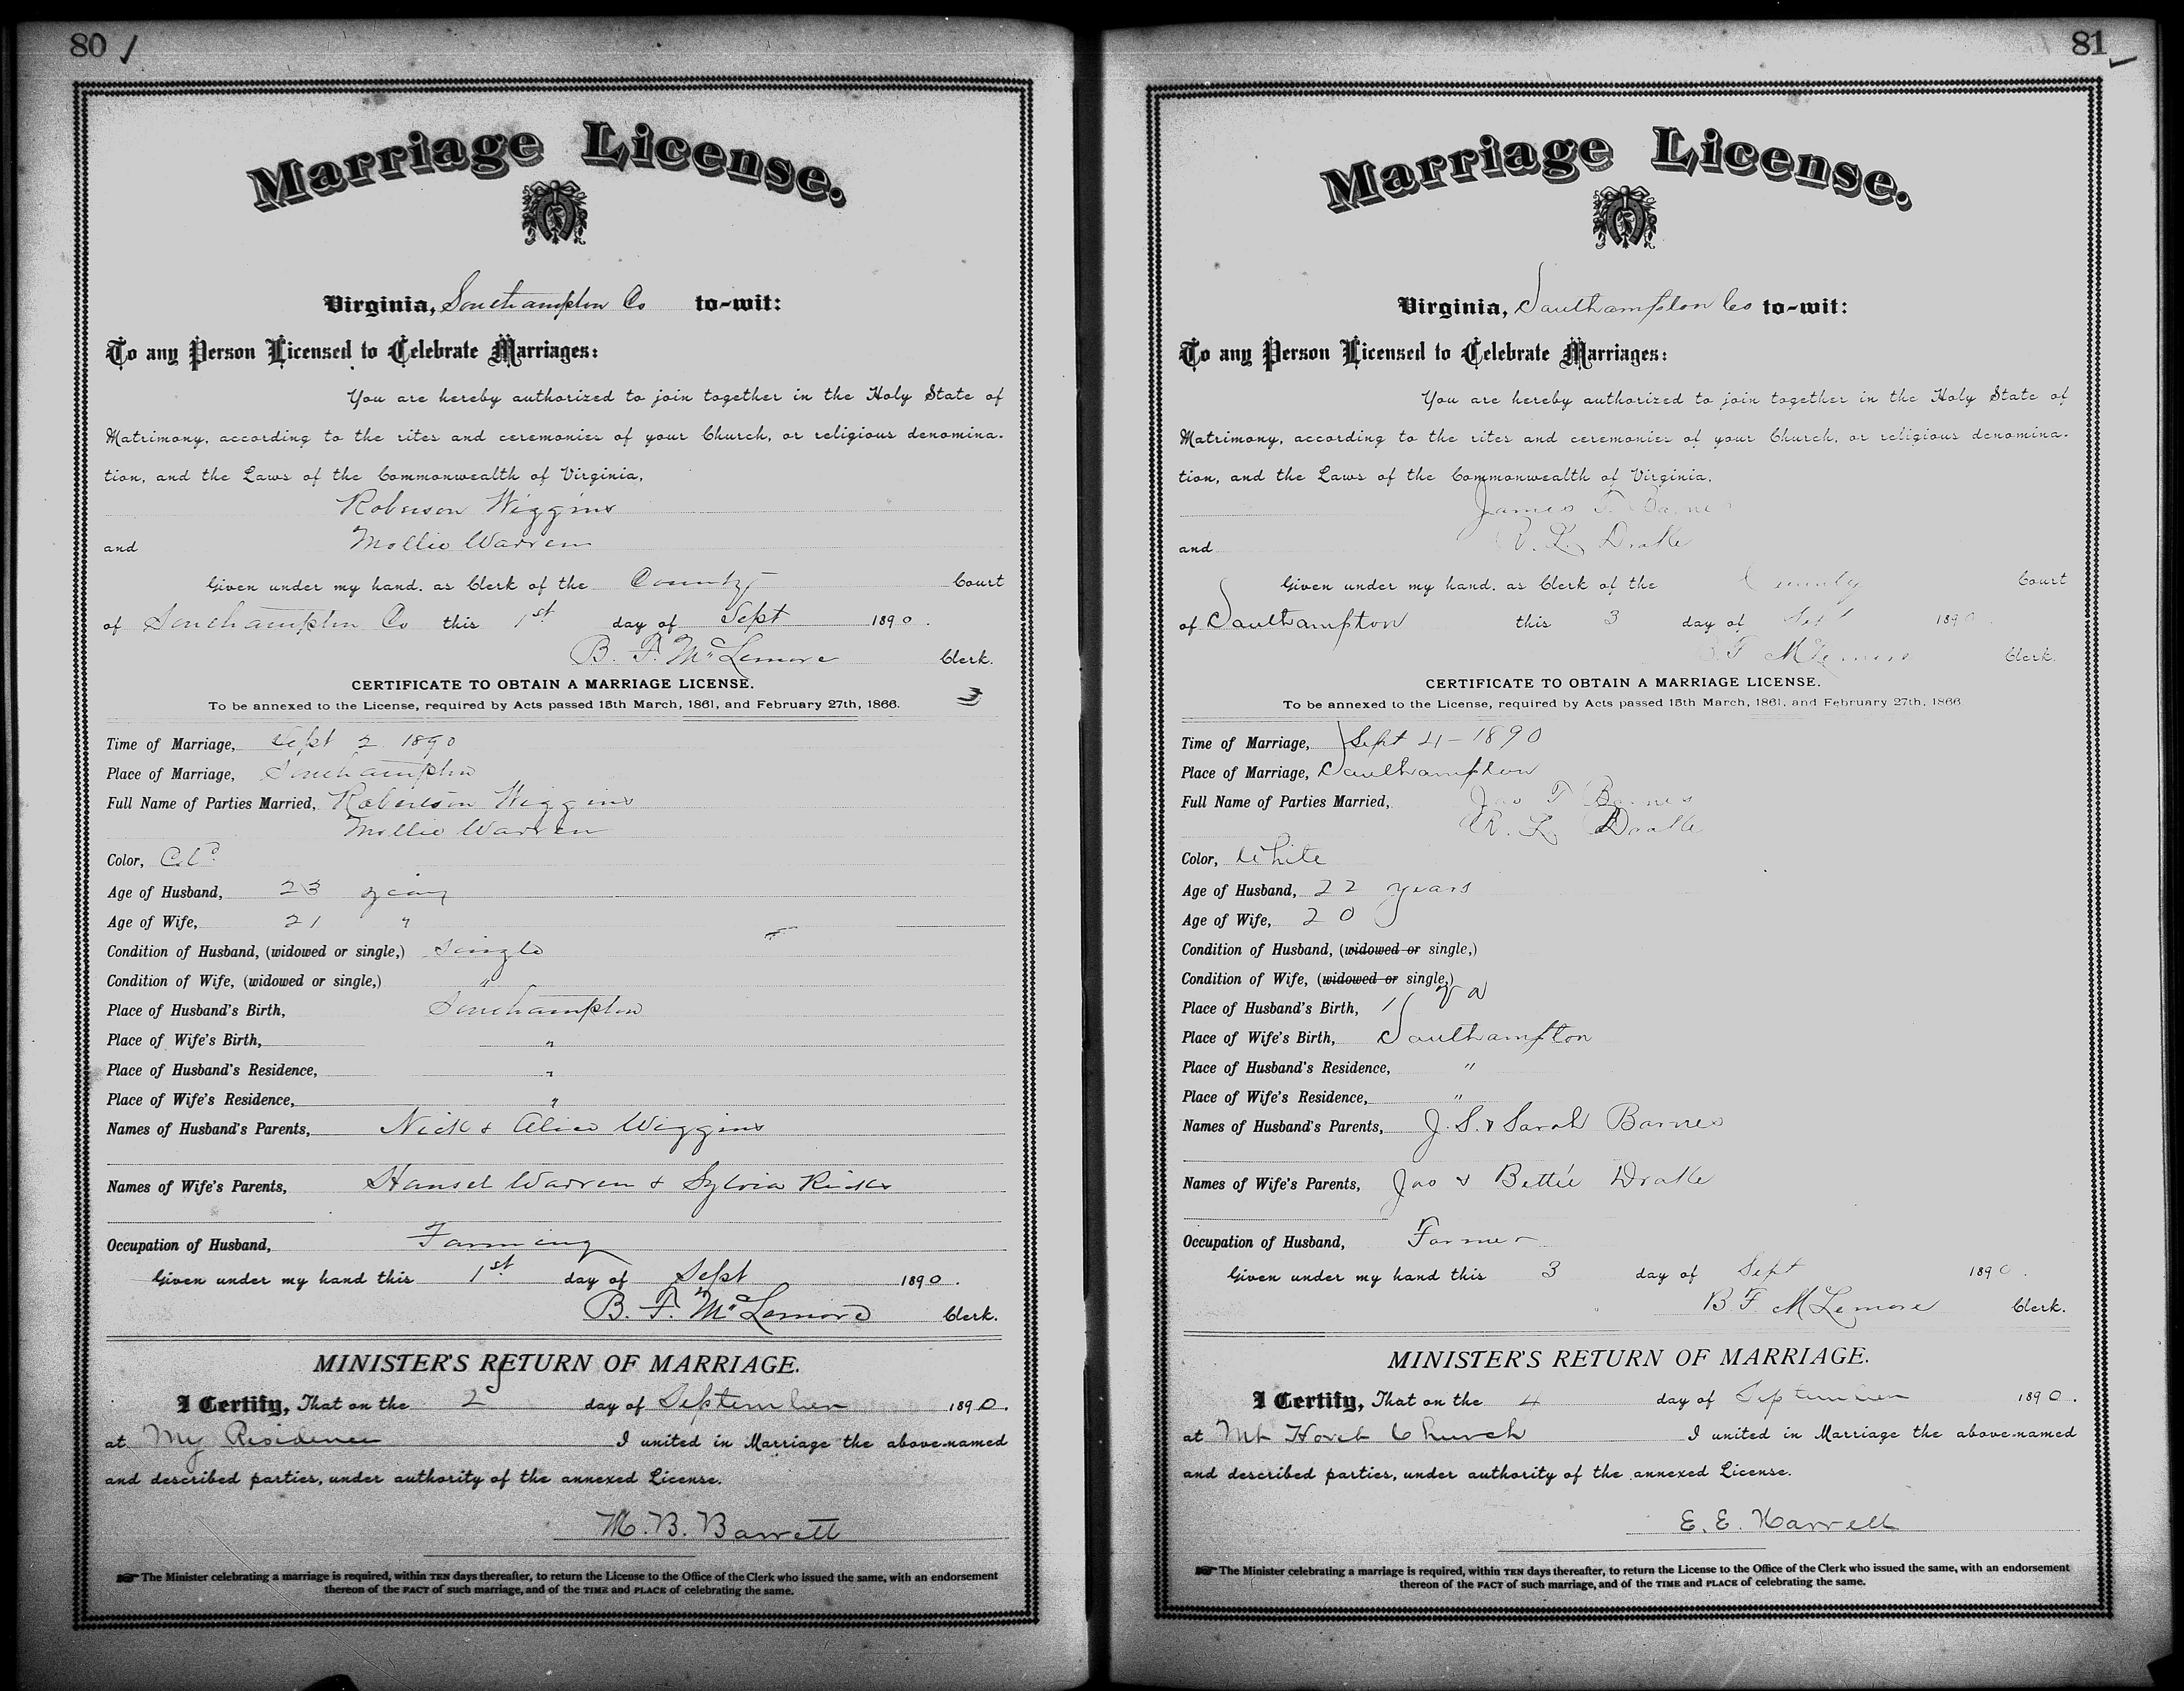 80
Marriage License.
Virginia, Southampton Co to-wit:
To any Person Licensed to Celebrate Marriages:
You are hereby authorized to join together in the Holy State of
Matrimony, according to the rites and ceremonies of your Church, or religious denomina-
tion, and the Laws of the Commonwealth of Virginia,
Roberson Wiggins
and Mollie Warren
Given under my hand, as Clerk of the County Court
of Southampton Co this 1st day of Sept 1890.
B. F. McLemore Clerk.
CERTIFICATE TO OBTAIN A MARRIAGE LICENSE.
To be annexed to the License, required by Acts passed 15th March, 1861, and February 27th, 1866.
Time of Marriage, Sept 2 1890
Place of Marriage, Southampton
Full Name of Parties Married, Robertson Wiggins
Mollie Warren
Color, Cold
Age of Husband, 23 years
Age of Wife, 21 "
Condition of Husband, (widowed or single,) Single
Condition of Wife, (widowed or single,) "
Place of Husband's Birth, Southampton
Place of Wife's Birth, "
Place of Husband's Residence, "
Place of Wife's Residence, "
Names of Husband's Parents, Nick & Alice Wiggins
Names of Wife's Parents, Hansel Warren & Sylvia Ricks
Occupation of Husband, Farming
Given under my hand this 1st day of Sept 1890.
B. F. McLemore Clerk.
MINISTER'S RETURN OF MARRIAGE.
I Certify, That on the 2 day of September 1890.
at My Residence I united in Marriage the above-named
and described parties, under authority of the annexed License.
M. B. Barrett
The Minister celebrating a marriage is required, within TEN days thereafter, to return the License to the Office of the Clerk who issued the same, with an endorsement
thereon of the FACT of such marriage, and of the TIME and PLACE of celebrating the same.
81
Marriage License.
Virginia, Southampton Co to-wit:
To any Person Licensed to Celebrate Marriages:
You are hereby authorized to join together in the Holy State of
Matrimony, according to the rites and ceremonies of your Church, or religious denomina-
tion, and the Laws of the Commonwealth of Virginia,
James T. Barnes
and R. L. Drake
Given under my hand, as Clerk of the County Court
of Southampton this 3 day of Sept 1890.
B. F McLemore Clerk.
CERTIFICATE TO OBTAIN A MARRIAGE LICENSE.
To be annexed to the License, required by Acts passed 15th March, 1861, and February 27th, 1866.
Time of Marriage, Sept 4 - 1890
Place of Marriage, Southampton
Full Name of Parties Married, Jas T Barnes
R. L. Drake
Color, White
Age of Husband, 22 years
Age of Wife, 20
Condition of Husband, (widowed or single,)
Condition of Wife, (widowed or single,)
Place of Husband's Birth, Va
Place of Wife's Birth, Southampton
Place of Husband's Residence, "
Place of Wife's Residence, "
Names of Husband's Parents, J. S. & Sarah Barnes
Names of Wife's Parents, Jas & Bettie Drake
Occupation of Husband, Farmer
Given under my hand this 3 day of Sept 1890.
B F McLemore Clerk.
MINISTER'S RETURN OF MARRIAGE.
I Certify, That on the 4 day of September 1890.
at Mt Horeb Church I united in Marriage the above-named
and described parties, under authority of the annexed License.
E. E. Harrell
The Minister celebrating a marriage is required, within TEN days thereafter, to return the License to the Office of the Clerk who issued the same, with an endorsement
thereon of the FACT of such marriage, and of the TIME and PLACE of celebrating the same.